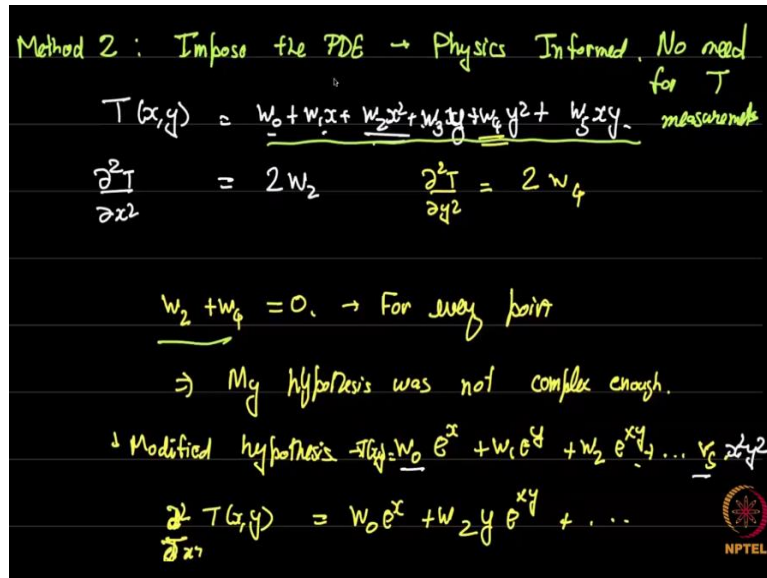 Method 2 : Impose the PDE → Physics Informed. No need for T measurements
T(x,y) = w₀ + w₁x + w₂x² + w₃y + w₄y² + w₅xy.
∂²T/∂x² = 2w₂ ∂²T/∂y² = 2w₄
w₂ + w₄ = 0. → For every point
⇒ My hypothesis was not complex enough.
Modified hypothesis T(x,y) = w₀ eˣ + w₁eʸ + w₂ eˣʸ + ... x²y²
∂²/∂x² T(x,y) = w₀eˣ + w₂ y eˣʸ + ...
NPTEL